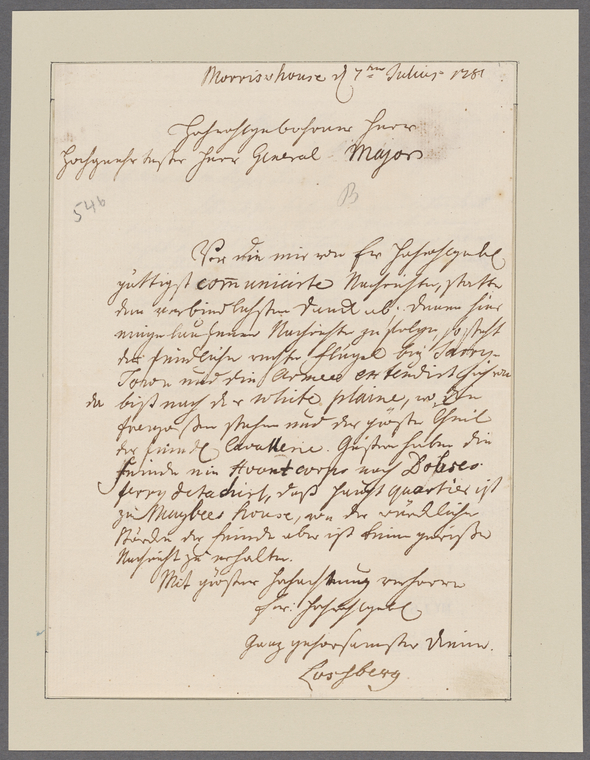 Morrishouse d 7ten Julius 1781
Hochwohlgebohrner Herr
Hochgeehrtester Herr General Major
546
B
Vor die mir von Ew Hochwohlgeb
gütigst communicirte Nachrichten, statte
den verbindlichsten Danck ab. Denen hier
eingelaufenen Nachrichten zu folge, so steht
der feindliche rechte Flügel bey Tarry-
Town und die Armee extendirt sich von
da biß nach der white plaine, wo die
Franzosen stehen und der gröste Theil
der feindl Cavallerie. Gestern haben die
Feinde ein Avant corps nach Dobses
ferry detachirt, daß Haupt quartier ist
zu Maybees house, von der würckliche
Stärcke der Feinde aber ist keine gewiße
Nachricht zu erhalten.
Mit gröster Hochachtung verharre
Ew: Hochwohlgeb
Ganz gehorsamster Diener.
Losberg